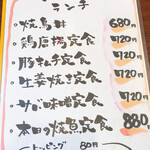 ランチ
・焼鳥丼 680円
・鶏唐揚定食 720円
・豚キムチ定食 720円
・生姜焼き定食 720円
・サバ味噌定食 720円
・本日の焼魚定食 880
トッピング 80円